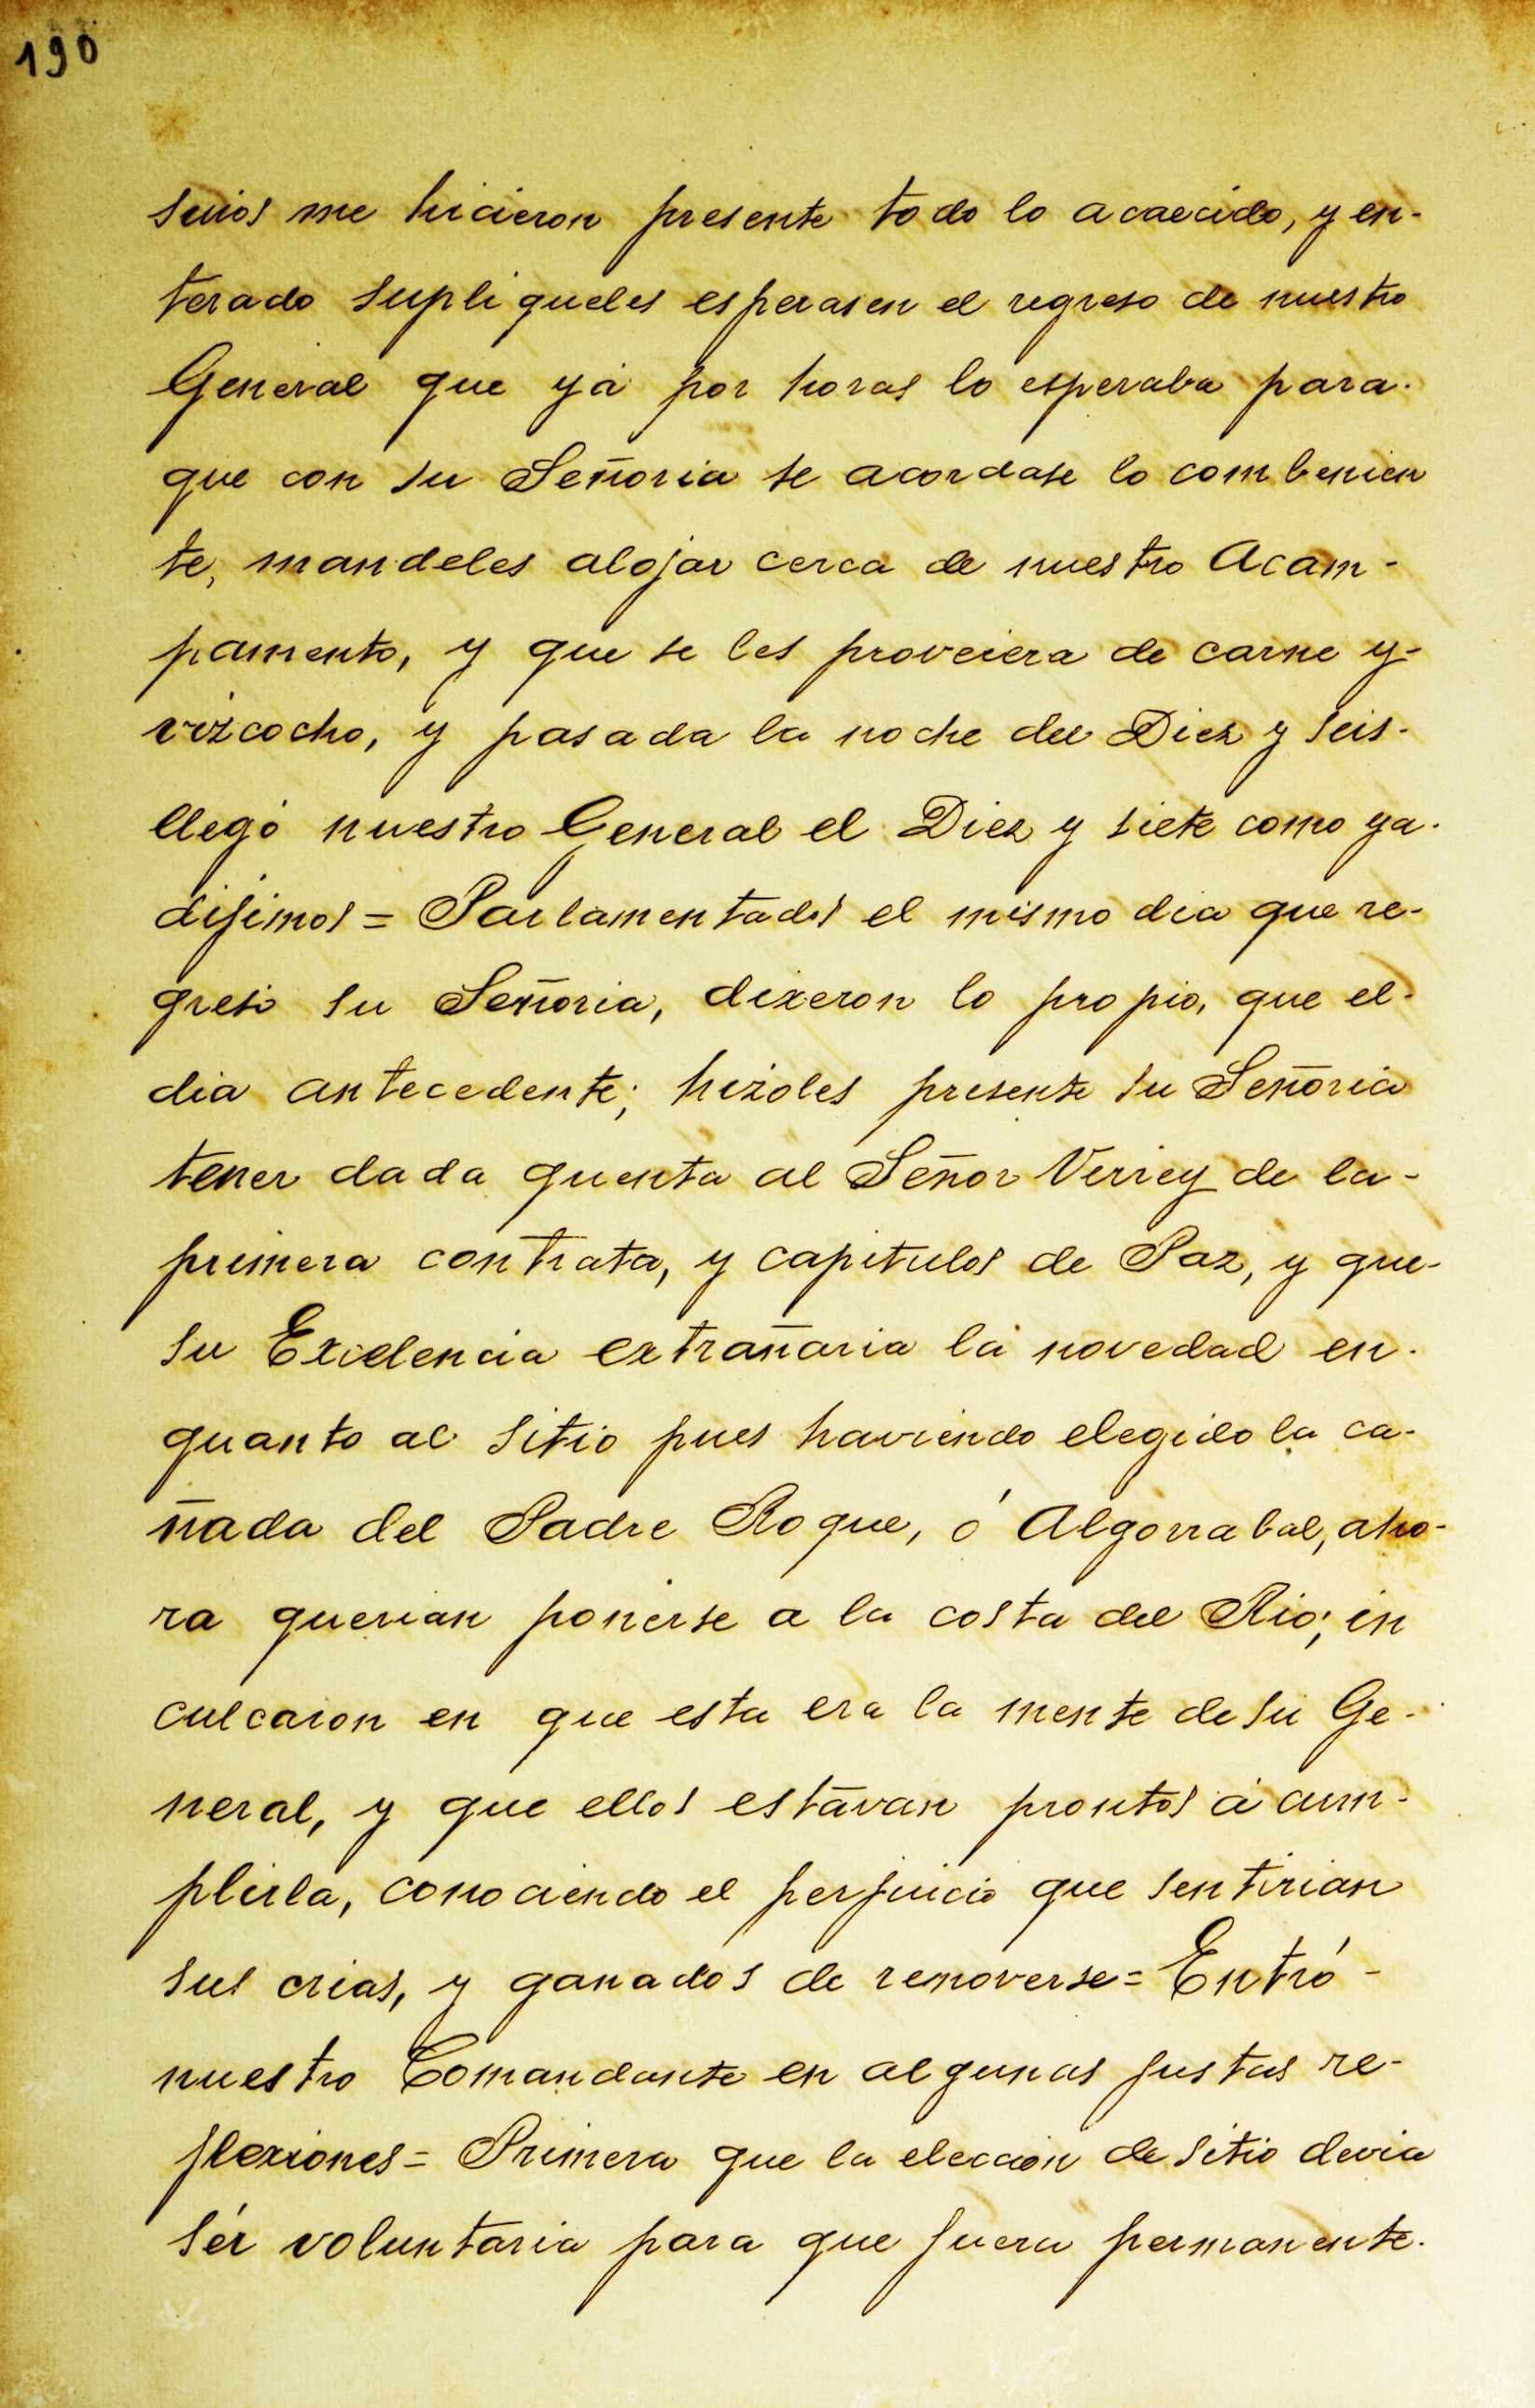 190
suios me hicieron presente todo lo acaecido, y en-
terado supliqueles esperasen el regreso de nuestro
General que yá por horas lo esperaba para-
que con su Señoria se acordase lo combenien
te, mandeles alojar cerca de nuestro Acam-
pamento, y que se les proveiera de carne y-
vizcocho, y pasada la noche del Diez y seis-
llegó nuestro General el Diez y siete como ya-
dijimos = Parlamentados el mismo dia que re-
gresó su Señoria, dixeron lo propio, que el-
dia antecedente; hizoles presente su Señoria
tener dada quenta al Señor Virrey de la-
primera contrata, y capitulos de Paz, y que-
su Excelencia extrañaria la novedad en-
quanto al sitio pues haviendo elegido la ca-
ñada del Padre Roque, ó Algorrabal, aho-
ra querian ponerse a la costa del Rio; in
culcaron en que esta era la mente de su Ge-
neral, y que ellos estavan prontos á cum-
plirla, conociendo el perjuicio que sentirian
sus crias, y ganados de removerse = Entró-
nuestro Comandante en algunas justas re-
flexiones = Primera que la eleccion de sitio devia
sér voluntaria para que fuera permanente.